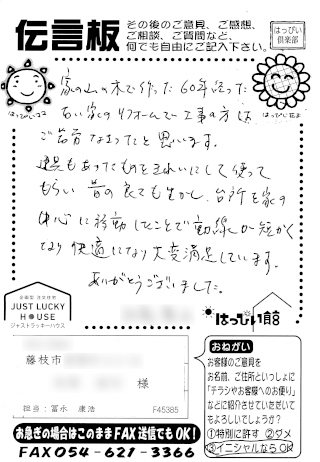 伝言板
その後のご意見、ご感想、
ご相談、ご要望など、
何でも自由にご記入下さい。
はっぴい
倶楽部
はっぴいココ
はっぴい花よ
家の山の木で作った60年経った
古い家のリフォームで工事の方は
ご苦労なさったと思います。
建具もあったものをきれいにして使って
もらい昔の良さも生かし、台所を家の
中心に移動したことで動線が短かく
なり快適になり大変満足しています。
ありがとうございました。
企画型 注文住宅
JUST LUCKY
HOUSE
ジャストラッキーハウス
はっぴい館
藤枝市
様
担当：冨永 康浩
F45385
おねがい
お客様のご意見を
お名前、ご住所といっしょに
「チラシやお客様へのお便り」
などに紹介させていただいて
もよろしいでしょうか?
①特別に許す ②ダメ
③イニシャルならOK
お急ぎの場合はこのままFAX送信でもOK!
FAX054-621-3366